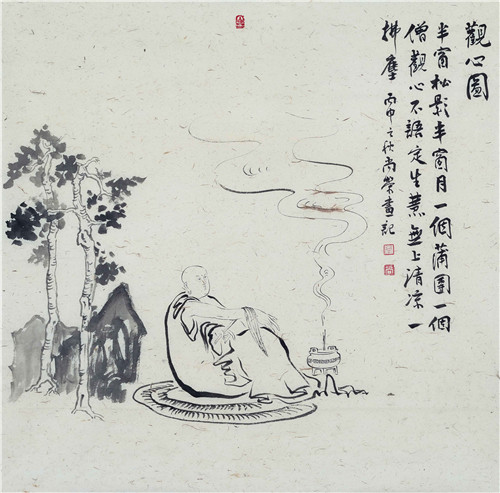 觀心圖
半窗松影半窗月一個蒲團一個
僧觀心不語定生慧無上清凉一
拂塵 丙申之秋尚榮畫記